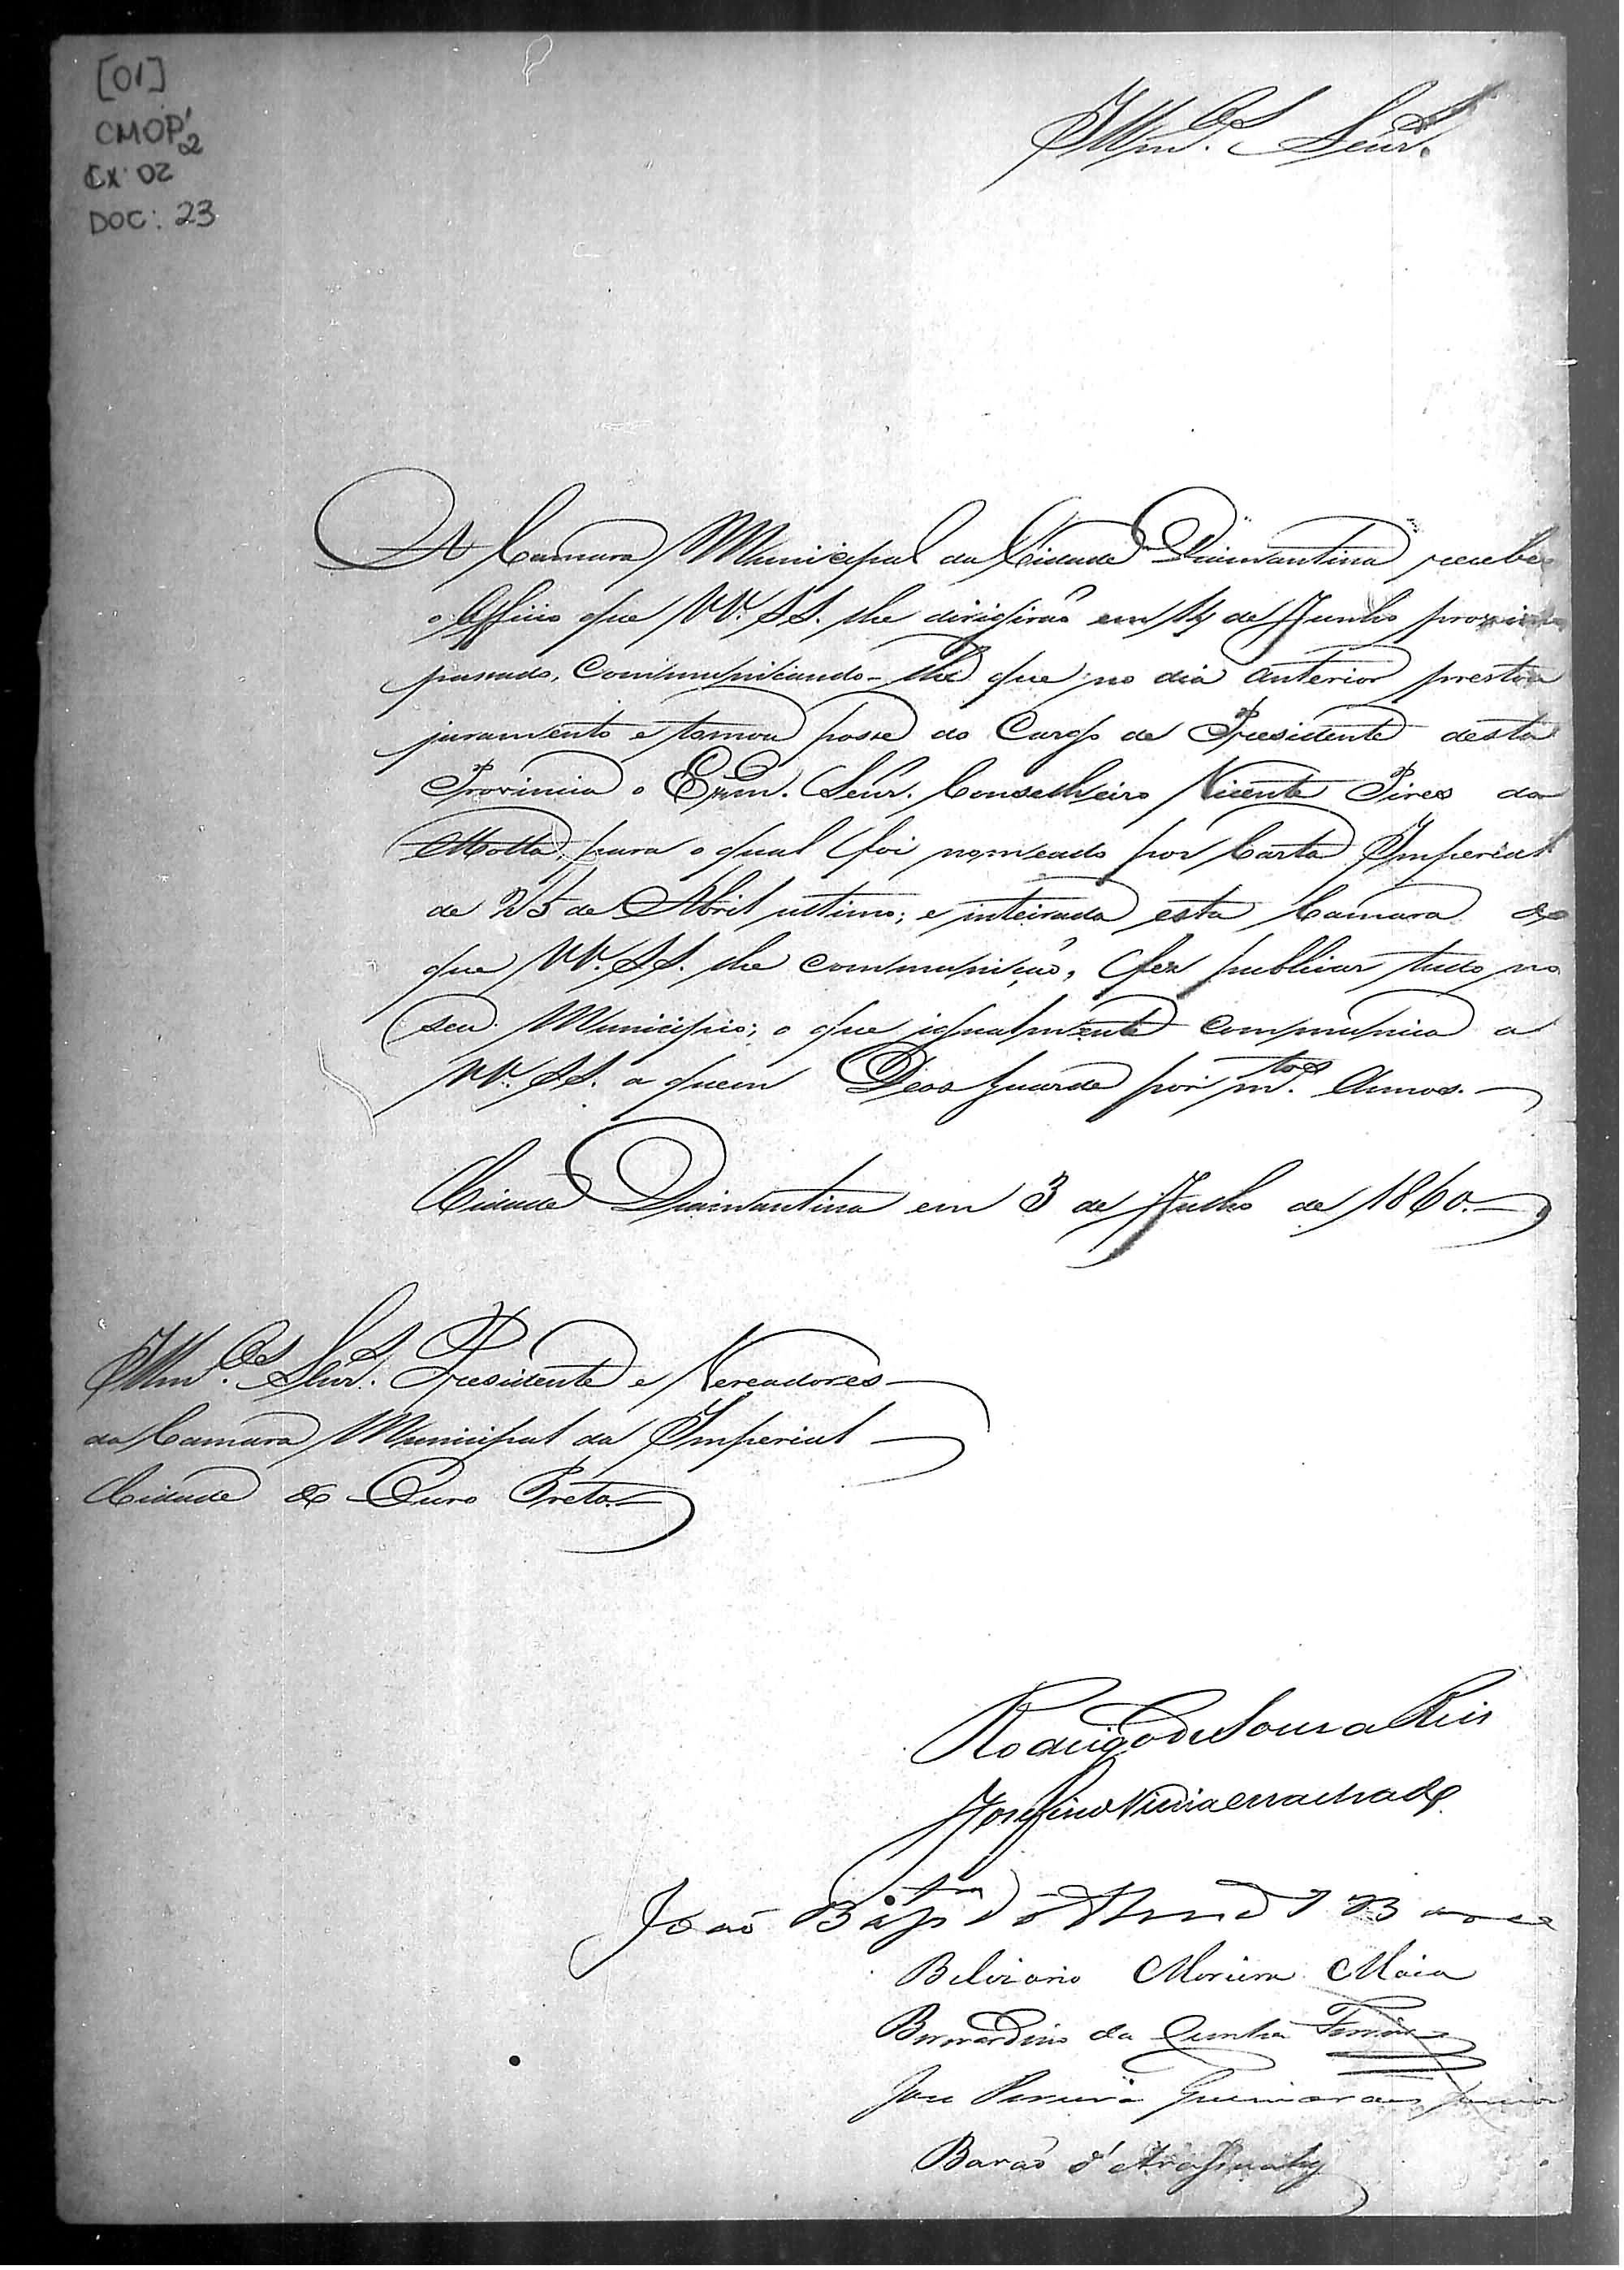 [01]
CMOP 2
CX: 02
DOC: 23
Illm.os Senr.s
A Camara Municipal da Cidade Diamantina recebeo
o Officio que VV. SS. lhe dirigirão em 14 de Junho proximo
passado, Communicando-lhe que no dia anterior prestou
juramento e tomou posse do Cargo de Presidente desta
Provincia o Exm. Senr. Conselheiro Vicente Pires da
Motta, para o qual foi nomeado por Carta Imperial
de 25 de Abril ultimo; e inteirada esta Camara do
que VV. SS. lhe communicão, fez publicar tudo no
seu Municipio; o que igualmente communica a
VV. SS. a quem Deos Guarde por m.tos Annos.
Cidade Diamantina em 3 de Julho de 1860.
Illm.os Senr.s Presidente e Vereadores
da Camara Municipal da Imperial
Cidade de Ouro Preto.
Rodrigo de Souza Reis
Josefino Vieira Machado
João Bap.ta
Belizario Moreira Maia
Bernardino da Cunha Ferreira
Jose Ferreira Guimarães Junior
Barão d'Arassuahy